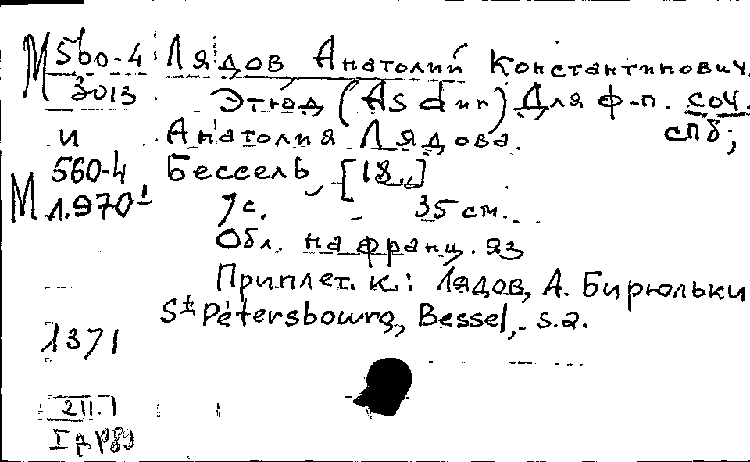 М 560-4 Лядов Анатолий Константинович.
3013 Этюд (As dur) для ф-п. соч.
и Анатолия Лядова. спб;
560-4 Бессель, [18..]
М л.970¹ 7 с. 35 см.
Обл. на франц. яз
Приплет. к.: Лядов, А. Бирюльки
St Pétersbourg, Bessel, s.a.
1371
2II.1